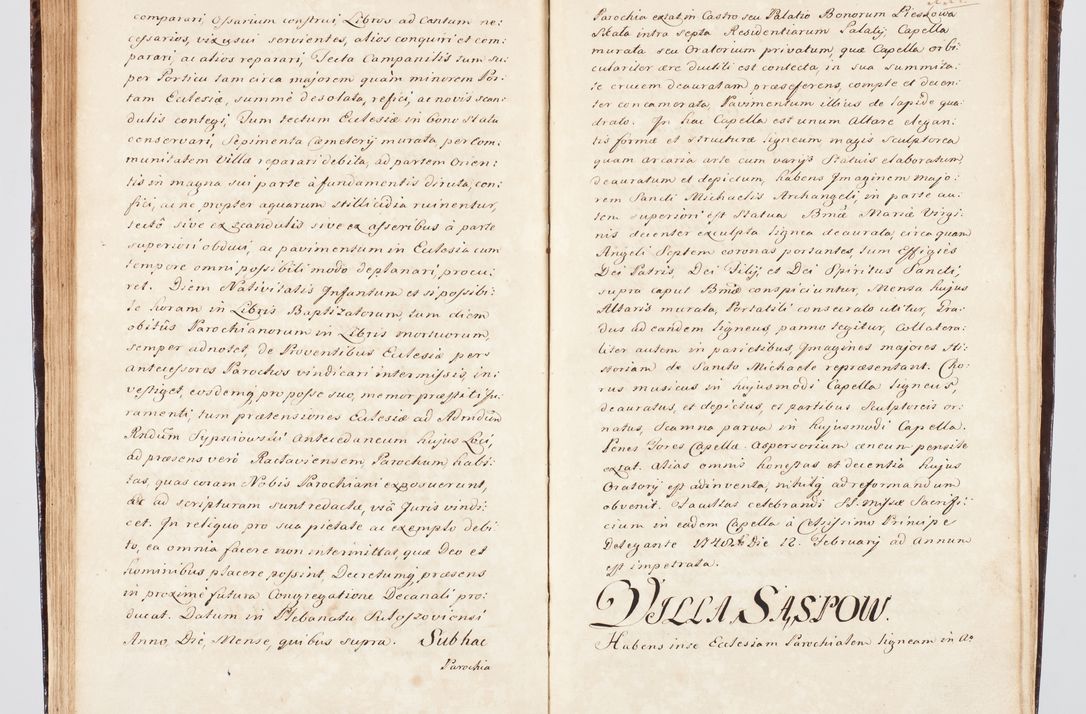 comparari, Ossarium construi, Libros ad Cantum ne:
cessarios, vix usui servientes, alios conquiri et com:
parari, ac alios reparari, Tecta Campanilis tum su:
per Porticu tam circa majorem quam minorem Por:
tam Eclesiæ, summè desolata, refici, ac novis scan:
dulis contegi, Tum tectum Eclesiæ in bono statu
conservari, Sepimenta Cæmeterij murata per Com:
munitatem Villæ reparari debita, ad partem Orien:
tis in magna sui parte à fundamentis diruta, con:
fici, ac ne propter aquarum stillicidia ruinentur,
tectô sive ex scandulis sive ex asseribus à parte
superiori obduci, ac pavimentum in Eclesia cum
tempore omni possibili modo deplanari, procu:
ret. Diem Nativitatis Infantum et si possibi:
le horam in Libris Baptizatorum, tum diem
obitûs Parochianorum in Libris mortuorum,
semper adnotet, de Proventibus Eclesiæ per
antecessores Parochos vindicari intermissis, in:
vestiget, eosdemq́ pro posse suo, memor præstiti Ju:
ramenti, tum prætensiones Eclesiæ ad Admdum
Rndum Sypniowski antecedaneum hujus Loci,
ad præsens verò Raclaviensem Parochum habi:
tas, quas coram Nobis Parochiani exposuerunt,
ac ad scripturam sunt redactæ, viâ Juris vindi:
cet. In reliquo pro sua pietate ac exemplo debi:
to, ea omnia facere non intermittat, quæ Deo et
hominibus placere possint, Decretumq́ præsens
in proximè futura Congregatione Decanali pro:
ducat. Datum in Plebanatu Suloszoviensi
Anno, Die, Mense, quibus supra. Sub hac
Parochia
Parochia extat in Castro seu Palatio Bonorum Pieskowa
Skała intra septa Residentiarum Palatij, Capella
murata seu Oratorium privatum, quæ Capella orbi
culariter ære ductili est contecta, in sua summita:
te crucem deauratam præseferens, comptè et decen:
ter concamerata, Pavimentum illius de lapide qua:
drato. In hac Capella est unum Altare elegan:
tis formæ et structuræ ligneum, magis sculptorea
quam arcaria arte cum varijs Statuis elaboratum,
deauratum et depictum, habens Imaginem majo:
rem Sancti Michaelis Archangeli, in parte au:
tem superiori est Statua Bmæ Mariæ Virgi:
nis decenter exculpta lignea deaurata, circa quam
Angeli Septem coronas portantes, tum Effigies
Dei Patris, Dei Filij, et Dei Spiritus Sancti,
supra caput Bmæ conspiciuntur, Mensa hujus
Altaris murata, Portatili consecrato utitur, Gra:
dus ad eandem ligneus panno tegitur, Collatera:
liter autem in parietibus, Imagines majores Hi:
storiam de Sancto Michaele repræsentant. Cho:
rus musicus in hujusmodi Capella ligneus,
deauratus, et depictus, et partibus Sculptoreis or:
natus, Scamna parva in hujusmodi Capella.
Penes Fores Capellæ Aspersorium æneum pensile
extat. Alias omnis honestas et decentia hujus
Oratorij est adinventa, nihilq́ ad reformandum
obvenit. Facultas celebrandi SS. Missæ Sacrifi:
cium in eadem Capella à Celsissimo Principe
Delegante 1748 Die 12. Februarij ad Annum
est impetrata.
VILLA SĄSPOW.
Habens in se Ecclesiam Parochialem ligneam in A°